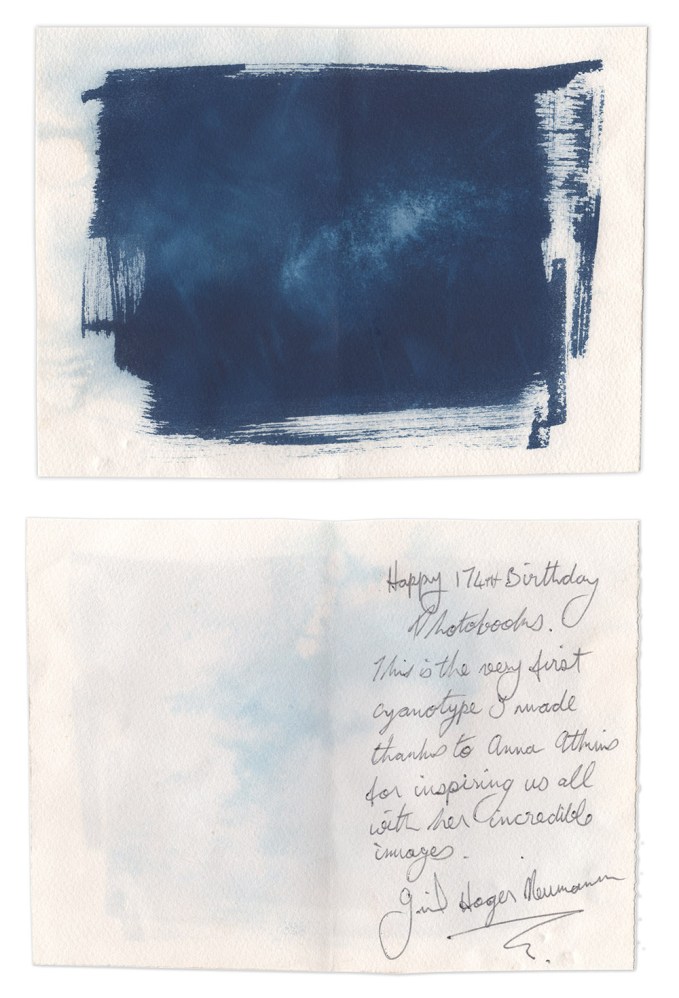 Happy 174th Birthday
Photobooks.
This is the very first
cyanotype I made
thanks to Anna Atkins
for inspiring us all
with her incredible
images.
Hoger Neumann